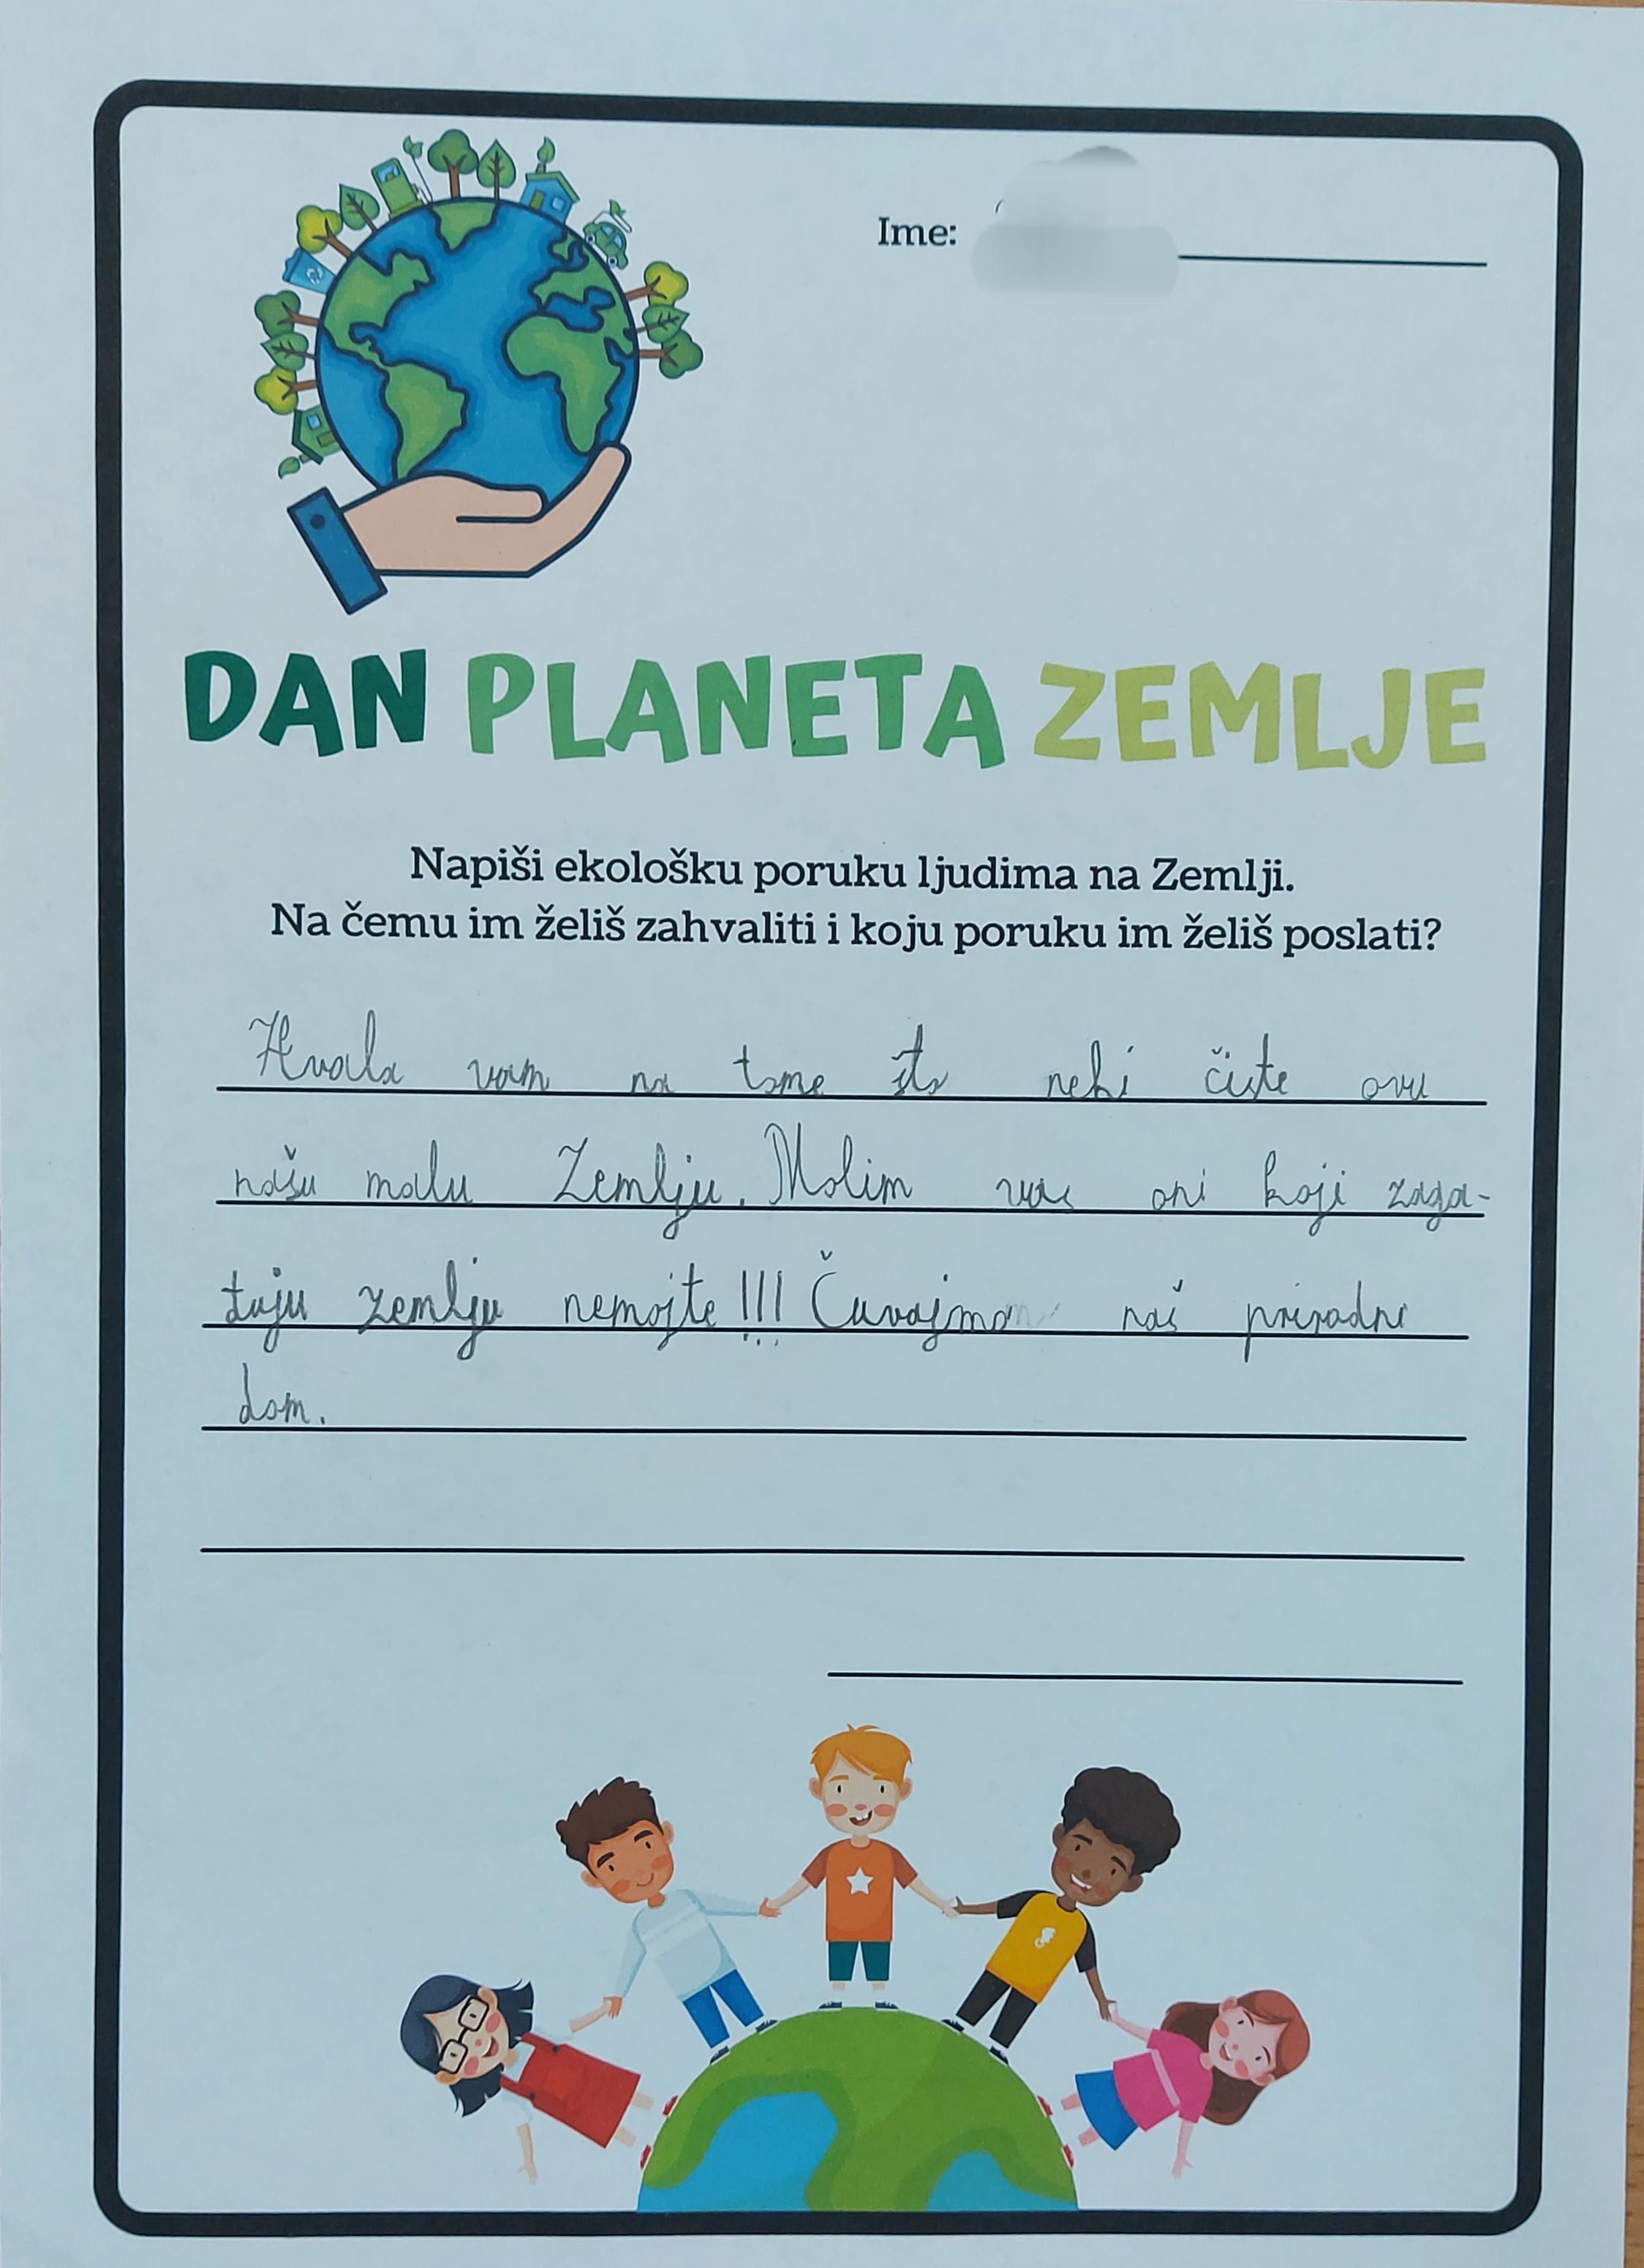 Ime:
DAN PLANETA ZEMLJE
Napiši ekološku poruku ljudima na Zemlji.
Na čemu im želiš zahvaliti i koju poruku im želiš poslati?
Hvala vam na tome što neki čiste ovu
našu malu Zemlju. Molim vas oni koji zaga-
đuju zemlju nemojte !!! Čuvajmo naš prirodni
dom.